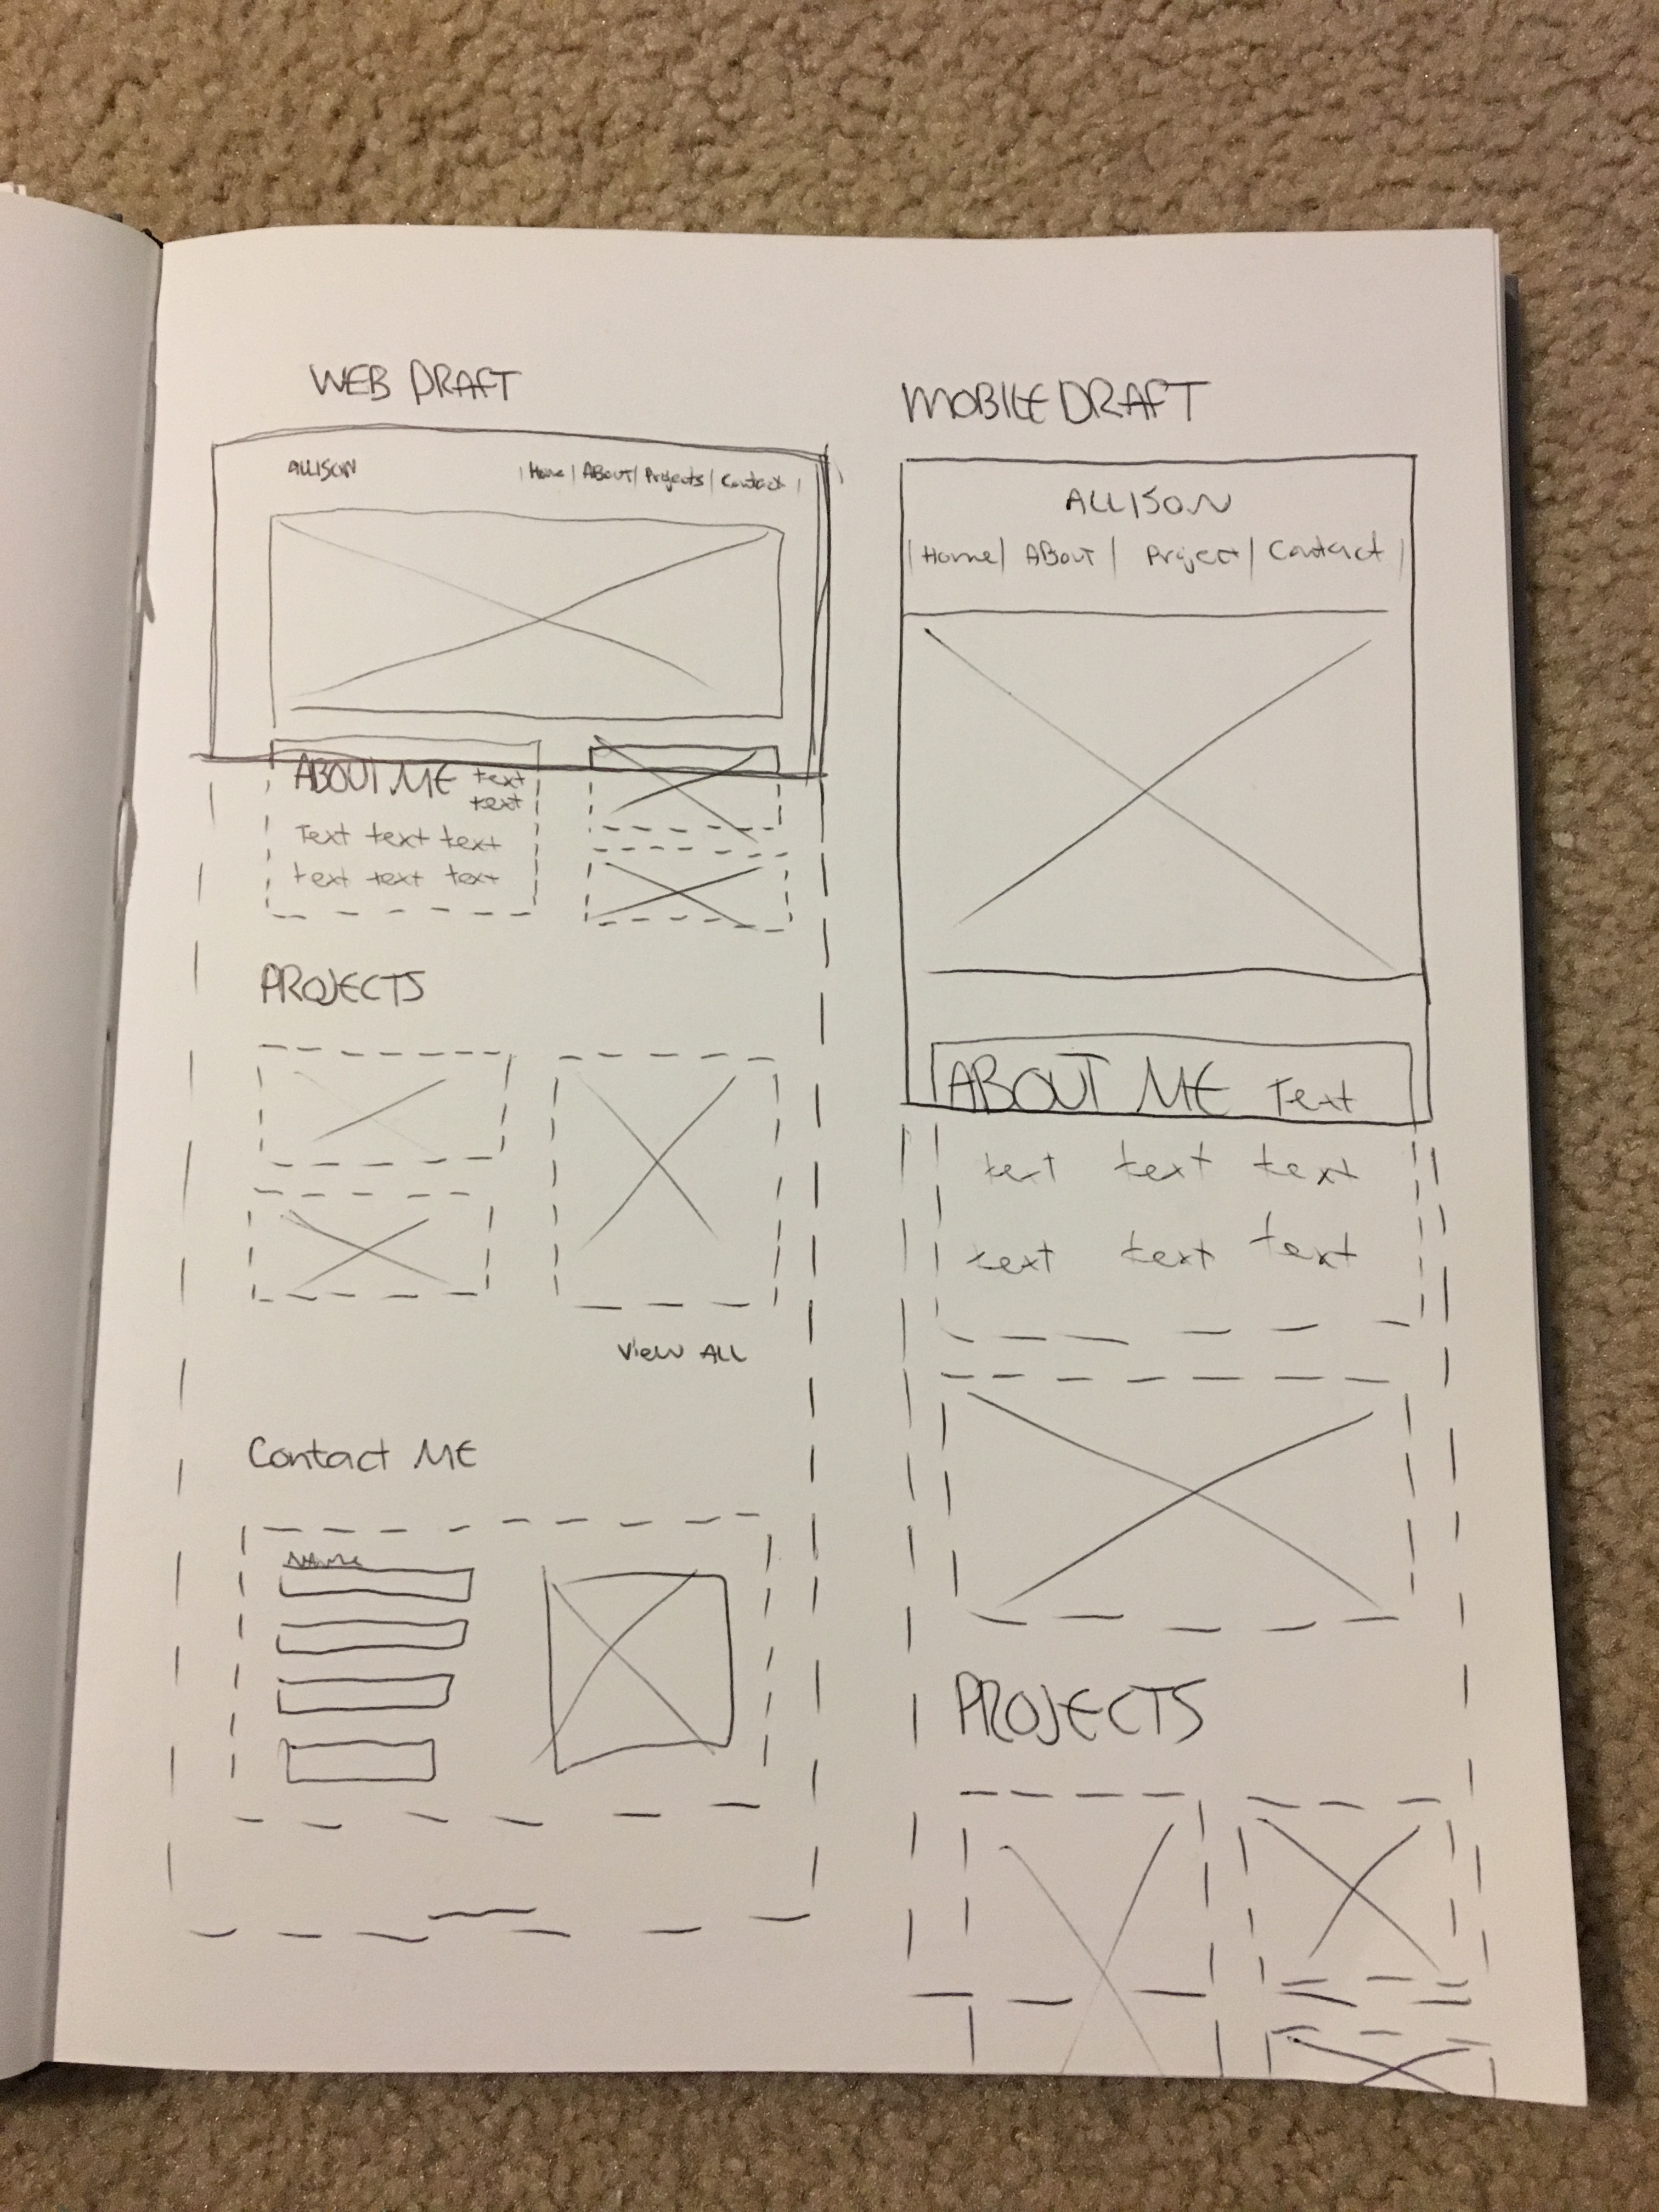 WEB DRAFT
ALLISON
| Home | ABOUT | Projects | Contact |
ABOUT ME text
text
Text text text
text text text
PROJECTS
VIEW ALL
Contact ME
NAME
MOBILE DRAFT
ALLISON
| Home | ABOUT | Project | Contact |
ABOUT ME Text
text text text
text text text
PROJECTS